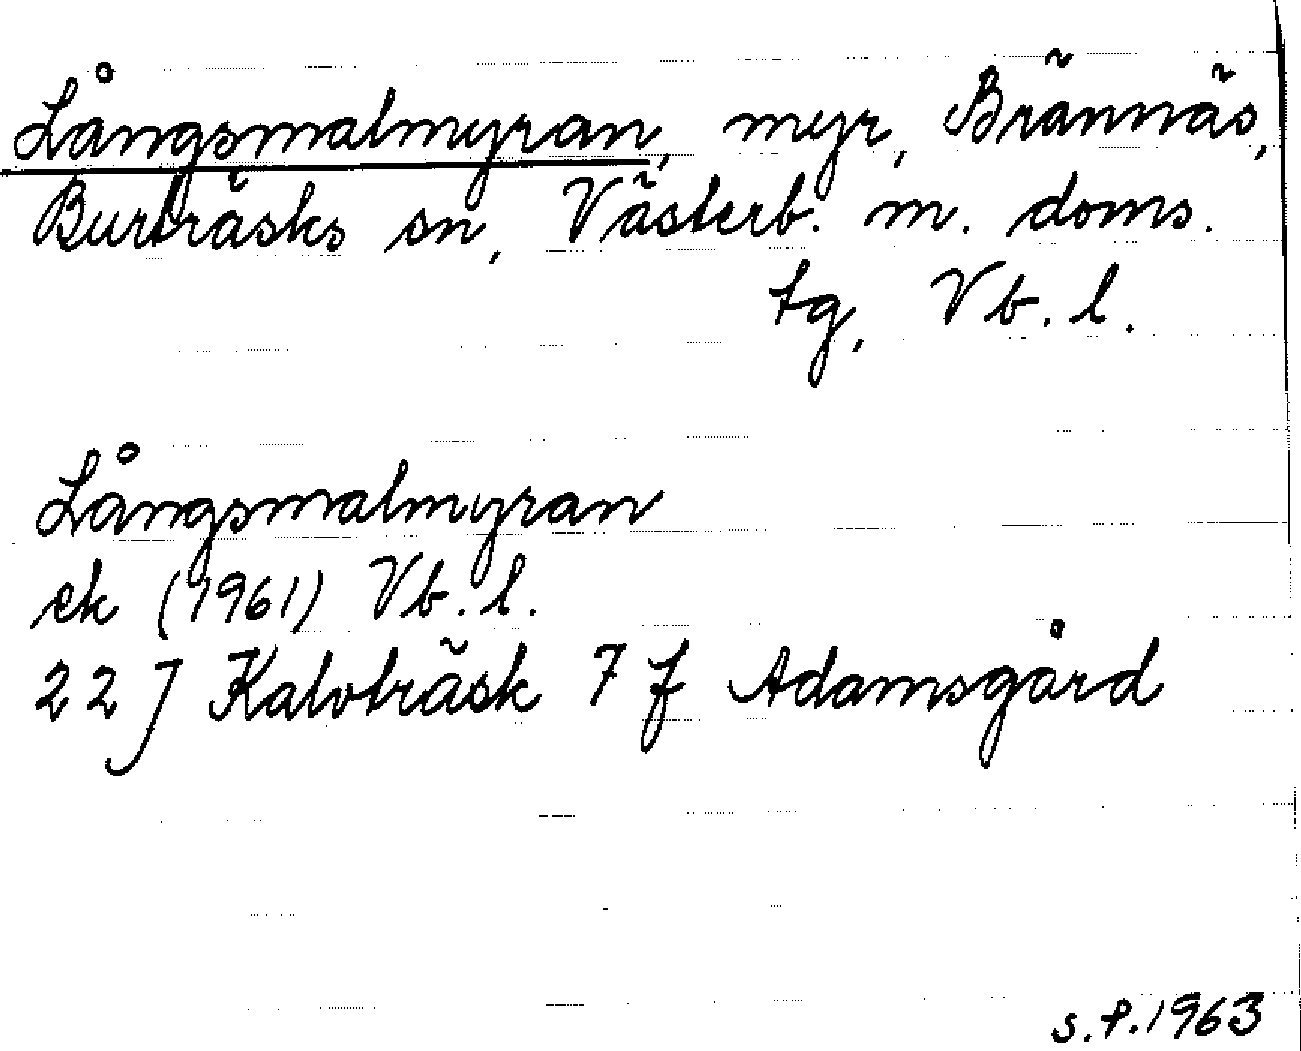 Långsmalmyran, myr, Brännäs,
Burträsks sn, Västerb. m. doms.
tg, Vb. l.
Långsmalmyran
ek (1961) Vb. l.
22 J Kalvträsk 7 f Adamsgård
s. P. 1963